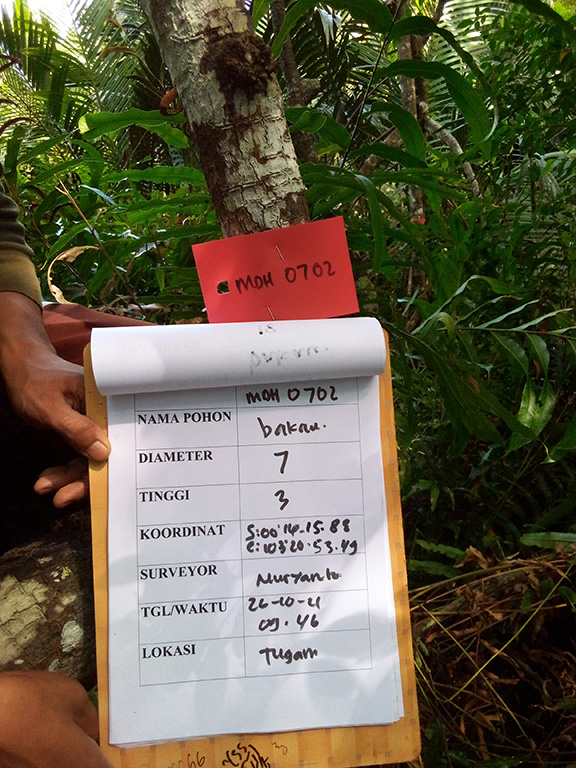 MDH 0702
MDH 0702
NAMA POHON bakau.
DIAMETER 7
TINGGI 3
KOORDINAT S:00°14.15.88
E:103°20.53.49
SURVEYOR Nuryanto
TGL/WAKTU 26-10-21
09.46
LOKASI Tugam